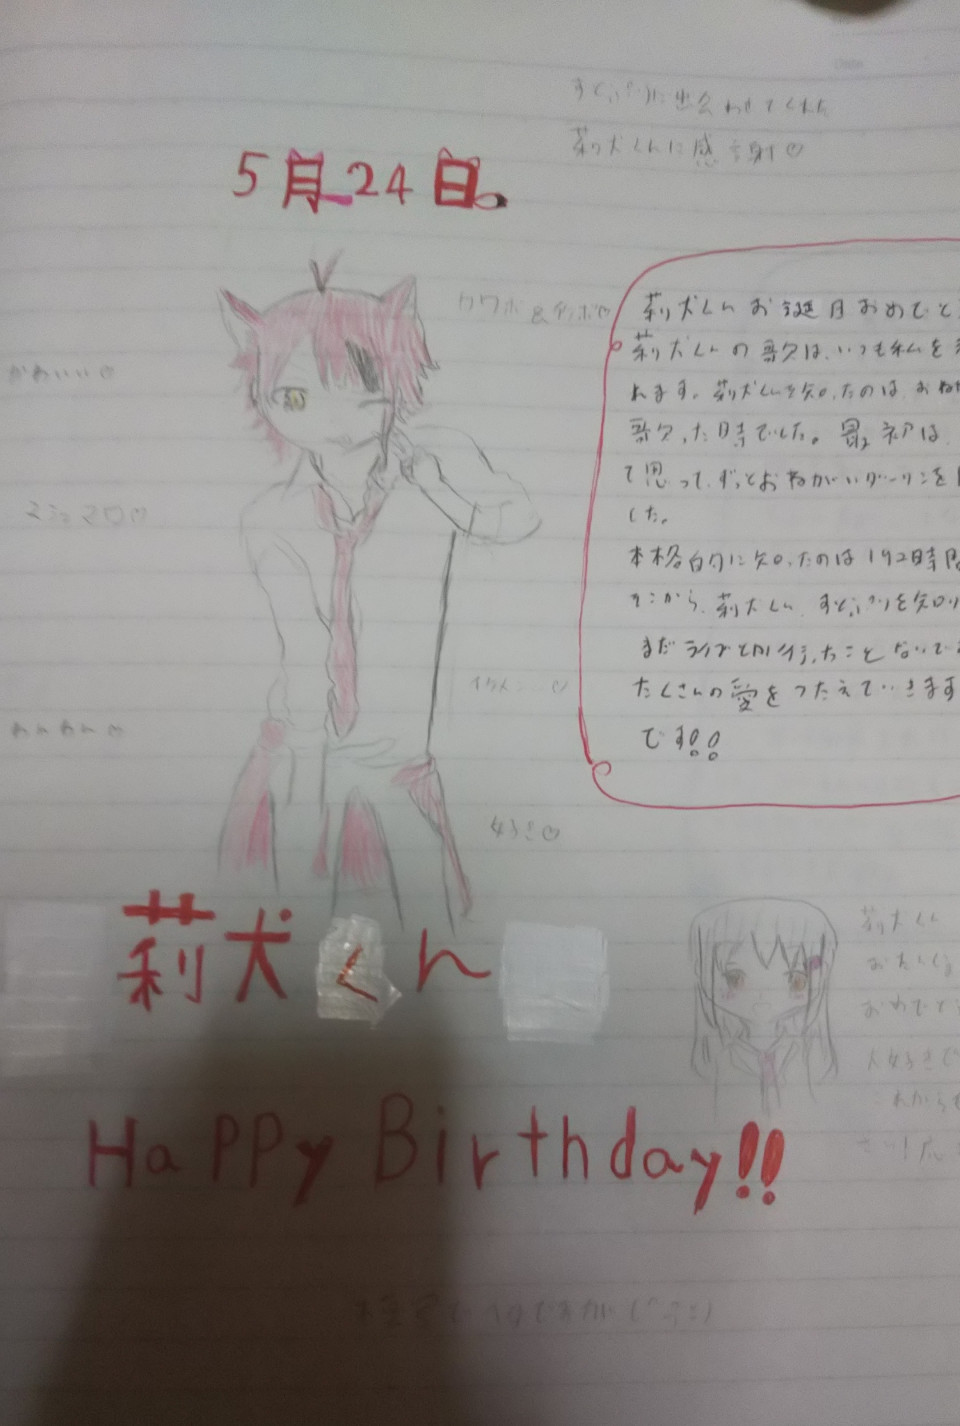 すとぷりに出会わせてくれた
莉犬くんに感謝♡
5月24日。
カワボ&イケボ♡
かわいい♡
マシュマロ♡
わんわん♡
イケメン...♡
好き♡
莉犬くんお誕生日おめでと
莉犬くんの歌は、いつも私を
れます。莉犬くんを知ったのは、おね
歌った時でした。最初は、
て思って、ずっとおねがいダーリンを
した。
本格的に知ったのは192時間
そこから、莉犬くん、すとぷりを知り
まだライブとか行ったことないで
たくさんの愛をつたえていきます
です!!
莉犬くん
莉犬くん
おたんじ
おめでと
大好きで
これからも
Happy Birthday!!